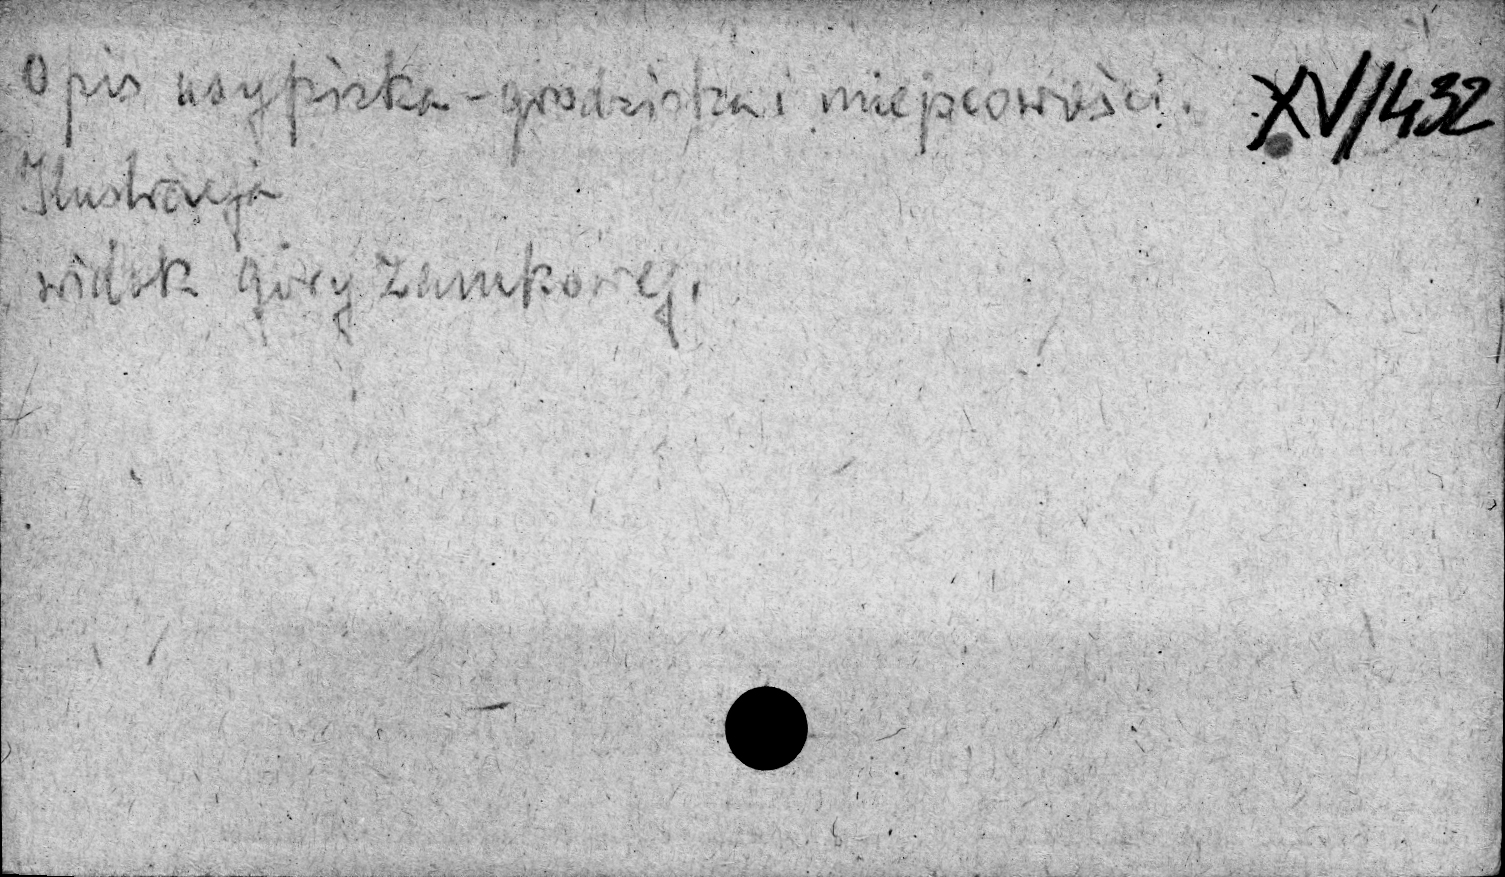 Opis usypiska - grodziska i miejscowości. XV/432
Ilustracja
widok góry zamkowej.